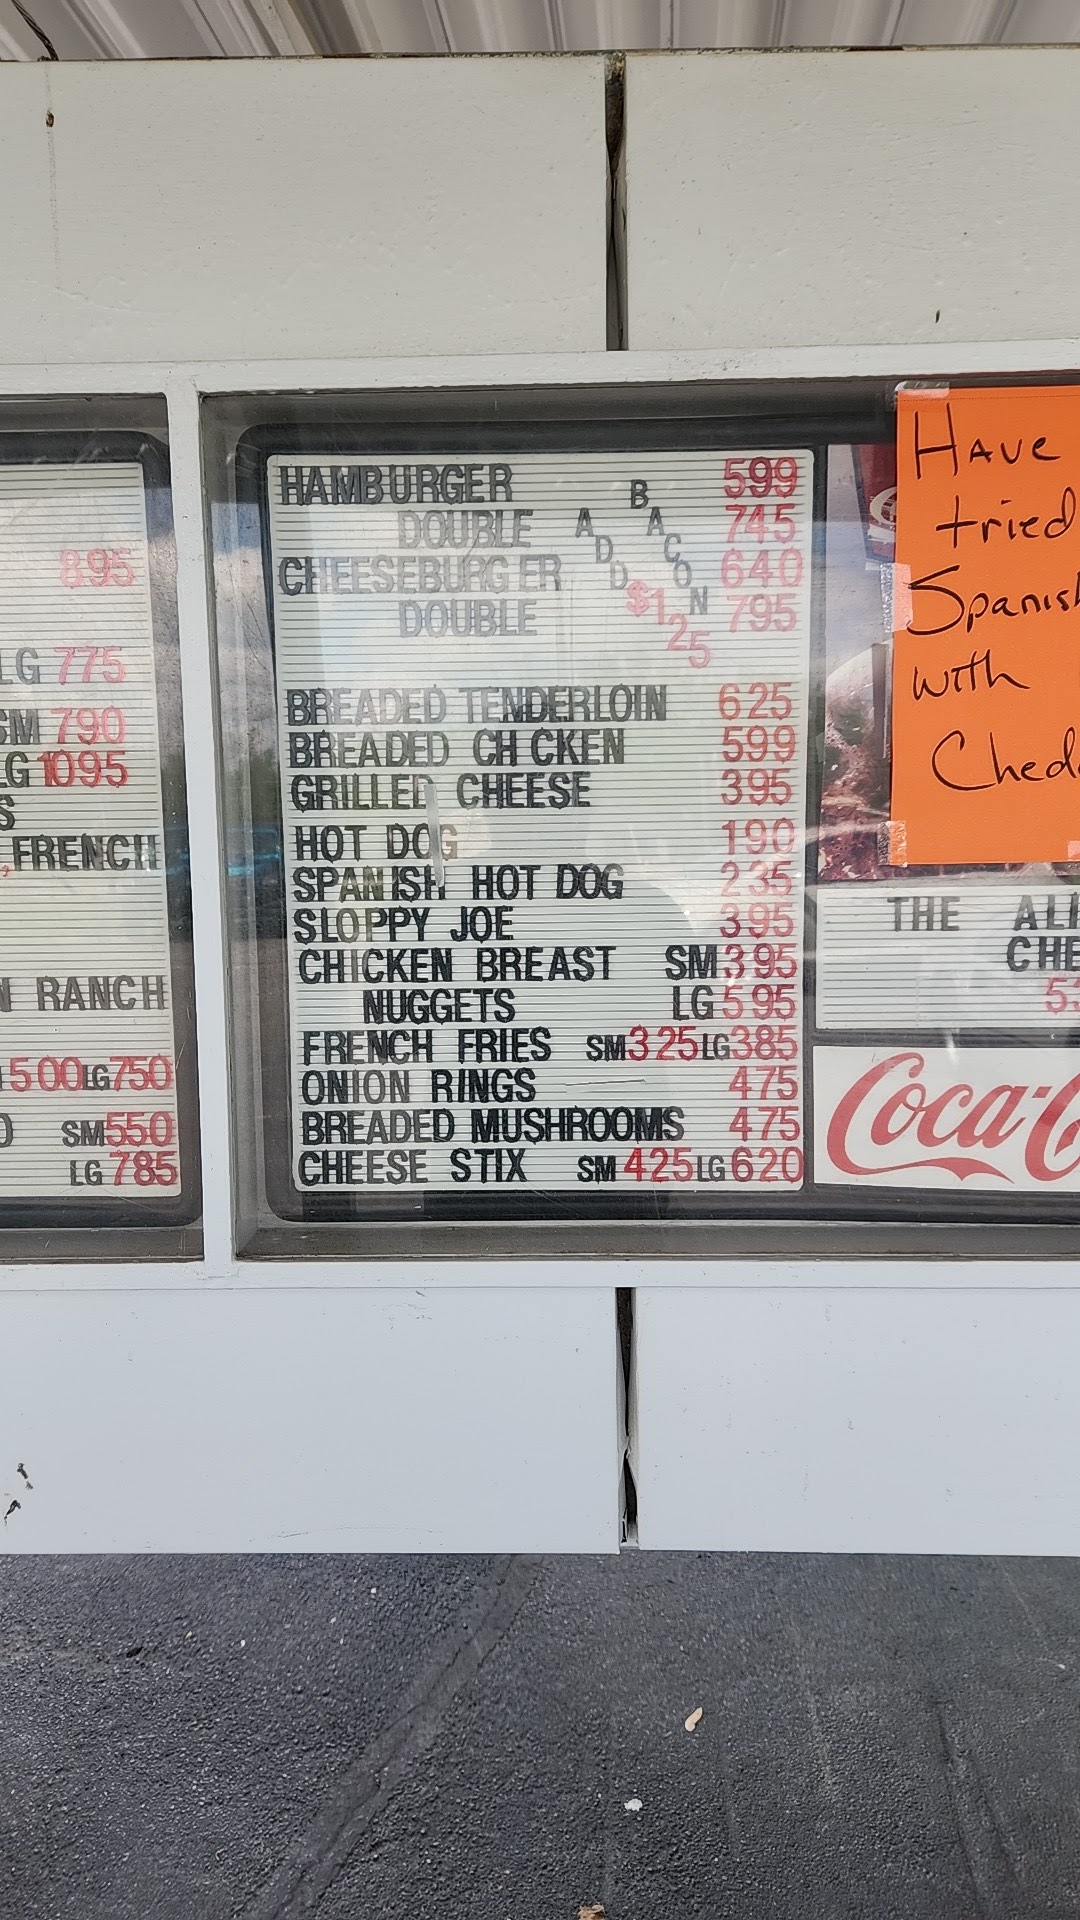 895
LG 775
SM 790
LG 1095
S
,FRENCH
N RANCH
500 LG 750
SM 550
LG 785
HAMBURGER 599
DOUBLE 745
CHEESEBURGER 640
DOUBLE 795
ADD BACON $1.25
BREADED TENDERLOIN 625
BREADED CH CKEN 599
GRILLED CHEESE 395
HOT DOG 190
SPANISH HOT DOG 235
SLOPPY JOE 395
CHICKEN BREAST SM 395
NUGGETS LG 595
FRENCH FRIES SM 325 LG 385
ONION RINGS 475
BREADED MUSHROOMS 475
CHEESE STIX SM 425 LG 620
Have
tried
Spanish
with
Ched
THE ALL
CHE
Coca-C